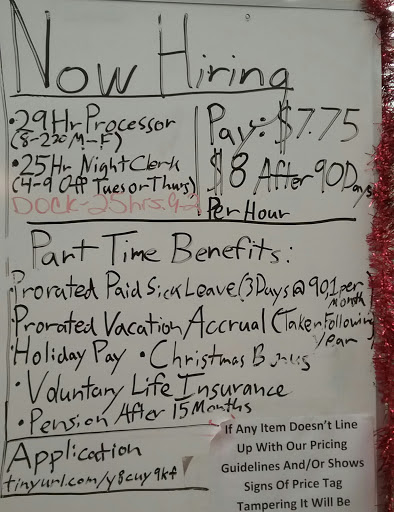 Now Hiring
• 29 Hr Processor
(8-2:20 M-F)
• 25 Hr Night Clerk
(4-9 Off Tues or Thurs)
Dock-25hrs. 9-2
Pay: $7.75
$8 After 90 Days
Per Hour
Part Time Benefits:
Prorated Paid Sick Leave (3 Days @ 90 1 per month)
Prorated Vacation Accrual (Taken Following year)
• Holiday Pay • Christmas Bonus
• Voluntary Life Insurance
• Pension After 15 Months
Application
tinyurl.com/y8cuy9kf
If Any Item Doesn't Line
Up With Our Pricing
Guidelines And/Or Shows
Signs Of Price Tag
Tampering It Will Be